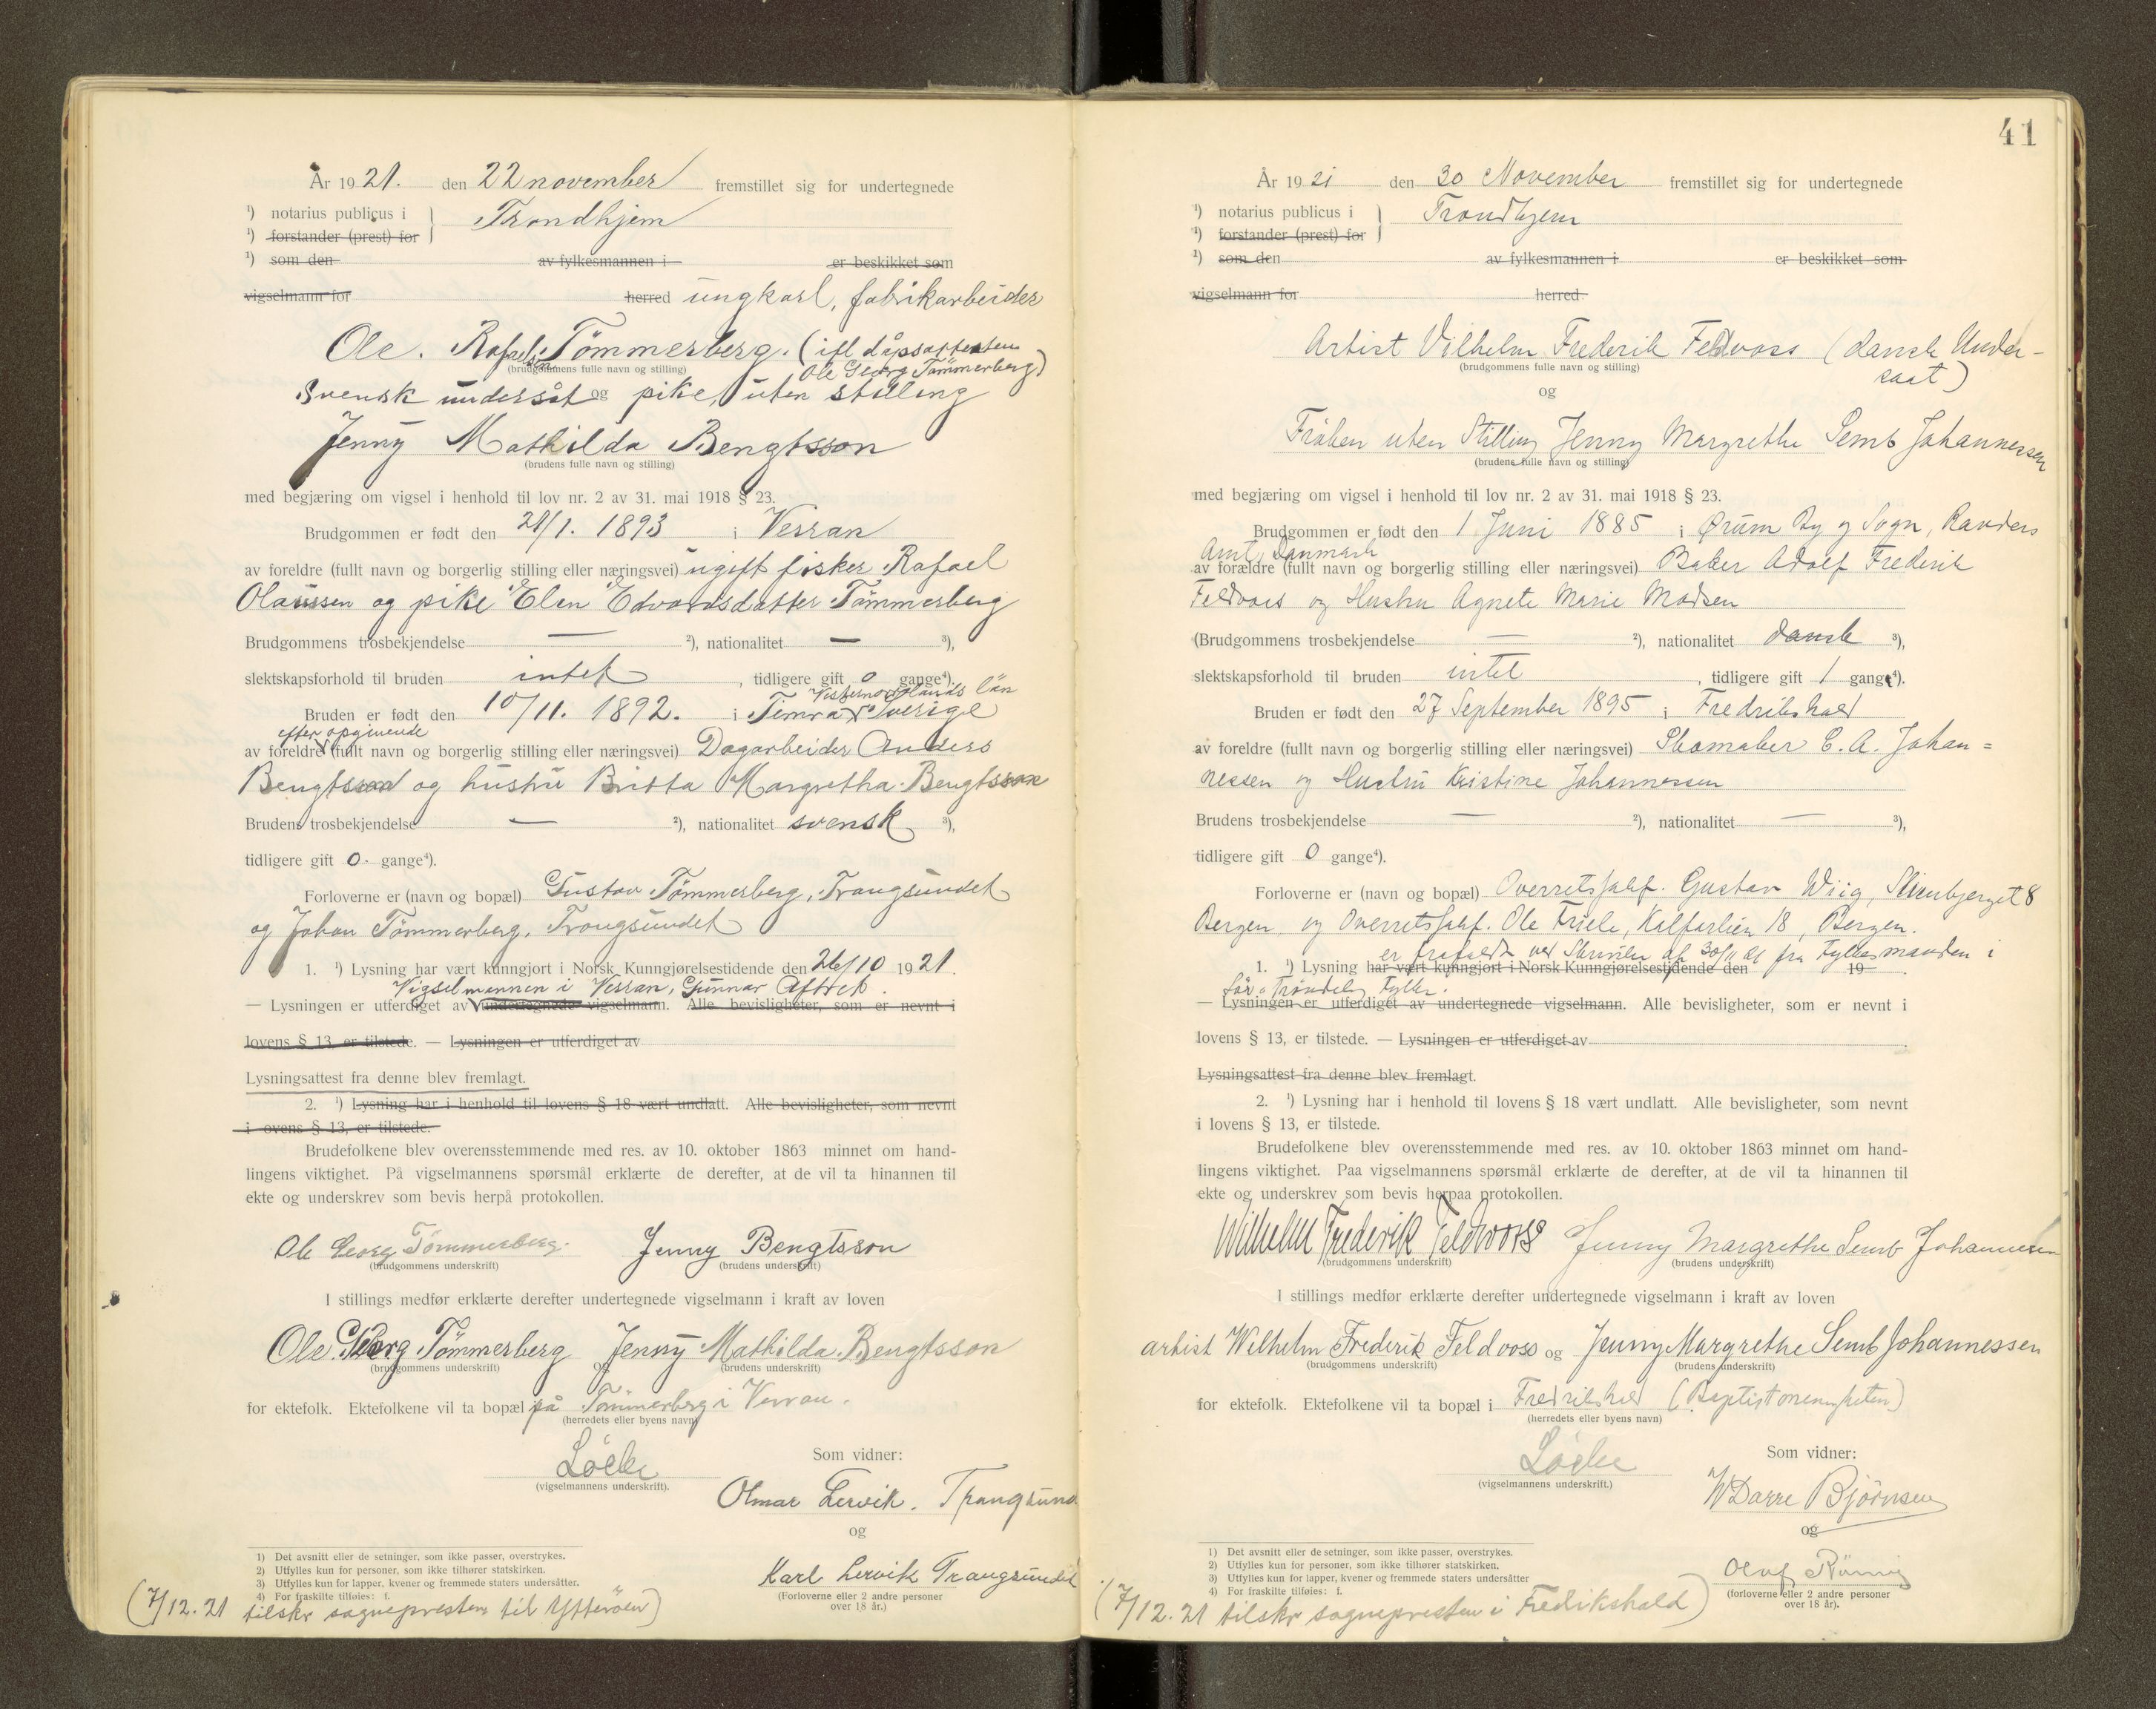 År 1921. den 22 november fremstillet sig for undertegnede
¹) notarius publicus i Trondhjem
¹) forstander (prest) for
¹) som den av fylkesmannen i er beskikket som
vigselmann for herred ungkarl, fabrikarbeider
Ole. Rafaelsen Tömmerberg. (ifl dåpsattesten
Ole Georg Tömmerberg)
(brudgommens fulle navn og stilling)
Svensk undersåt og pike, uten stilling
Jenny Mathilda Bengtsson
(brudens fulle navn og stilling)
med begjæring om vigsel i henhold til lov nr. 2 av 31. mai 1918 § 23.
Brudgommen er født den 21/1. 1893 i Verran
av foreldre (fullt navn og borgerlig stilling eller næringsvei) ugift fisker Rafael
Olaussen og pike Elen Edvardsdatter Tömmerberg
Brudgommens trosbekjendelse — ²), nationalitet — ³),
slektskapsforhold til bruden intet, tidligere gift 0 gange⁴).
Vesternorrlands län
Bruden er født den 10/11. 1892. i Timrå Sverige
efter opgivende
av foreldre (fullt navn og borgerlig stilling eller næringsvei) Dagarbeider Anders
Bengtsson og hustru Britta Margretha Bengtsson
Brudens trosbekjendelse — ²), nationalitet svensk ³),
tidligere gift 0. gange⁴).
Forloverne er (navn og bopæl) Gustav Tömmerberg, Trangsundet
og Johan Tömmerberg, Trangsundet
1. ¹) Lysning har vært kunngjort i Norsk Kunngjørelsestidende den 26/10 1921.
Vigselmannen i Verran, Gunnar Aftret.
— Lysningen er utferdiget av undertegnede vigselmann. Alle bevisligheter, som er nevnt i
lovens § 13, er tilstede. — Lysningen er utferdiget av
Lysningsattest fra denne blev fremlagt.
2. ¹) Lysning har i henhold til lovens § 18 vært undlatt. Alle bevisligheter, som nevnt
i lovens § 13, er tilstede.
Brudefolkene blev overensstemmende med res. av 10. oktober 1863 minnet om hand-
lingens viktighet. På vigselmannens spørsmål erklærte de derefter, at de vil ta hinannen til
ekte og underskrev som bevis herpå protokollen.
Ole Georg Tömmerberg. Jenny Bengtsson
(brudgommens underskrift) (brudens underskrift)
I stillings medfør erklærte derefter undertegnede vigselmann i kraft av loven
Ole Georg Tömmerberg og Jenny Mathilda Bengtsson
(brudgommens underskrift) (brudens underskrift)
for ektefolk. Ektefolkene vil ta bopæl på Tömmerberg i Verran.
(herredets eller byens navn)
Löcke
(vigselmannens underskrift).
Som vidner:
Olmar Lervik. Trangsund
og
Karl Lervik Trangsundet
(Forloverne eller 2 andre personer
over 18 år.)
1) Det avsnitt eller de setninger, som ikke passer, overstrykes.
2) Utfylles kun for personer, som ikke tilhører statskirken.
3) Utfylles kun for lapper, kvener og fremmede staters undersåtter.
4) For fraskilte tilføies: f.
(7/12.21 tilskr sognepresten til Ytterøen)
41
År 1921 den 30 November fremstillet sig for undertegnede
¹) notarius publicus i Trondhjem
¹) forstander (prest) for
¹) som den av fylkesmannen i er beskikket som
vigselmann for herred
Artist Vilhelm Frederik Feldvoss (dansk Under-
saat)
(brudgommens fulle navn og stilling)
og
Frøken uten Stilling Jenny Margrethe Semb Johannessen
(brudens fulle navn og stilling)
med begjæring om vigsel i henhold til lov nr. 2 av 31. mai 1918 § 23.
Brudgommen er født den 1 Juni 1885 i Ørum By og Sogn, Randers
Amt, Danmark
av forældre (fullt navn og borgerlig stilling eller næringsvei) Baker Adolf Frederik
Feldvoss og Hustru Agnete Marie Madsen
(Brudgommens trosbekjendelse — ²), nationalitet dansk ³),
slektskapsforhold til bruden intet, tidligere gift 1 gang⁴).
Bruden er født den 27 September 1895 i Fredrikshald
av foreldre (fullt navn og borgerlig stilling eller næringsvei) Skomaker C. A. Johan=
nessen og Hustru Kristine Johannessen
Brudens trosbekjendelse — ²), nationalitet — ³),
tidligere gift 0 gange⁴).
Forloverne er (navn og bopæl) Overretssakf. Gustav Wiig, 8
Bergen og Overretssakf. Ole Friele, Kalfarlien 18, Bergen.
er frafaldt ved Skrivelse af 30/11 21 fra Fylkesmanden i
1. ¹) Lysning har vært kunngjort i Norsk Kunngjørelsestidende den 19
Sör-Tröndelag Fylke.
— Lysningen er utferdiget av undertegnede vigselmann. Alle bevisligheter, som er nevnt i
lovens § 13, er tilstede. — Lysningen er utferdiget av
Lysningsattest fra denne blev fremlagt.
2. ¹) Lysning har i henhold til lovens § 18 vært undlatt. Alle bevisligheter, som nevnt
i lovens § 13, er tilstede.
Brudefolkene blev overensstemmende med res. av 10. oktober 1863 minnet om hand-
lingens viktighet. Paa vigselmannens spørsmål erklærte de derefter, at de vil ta hinannen til
ekte og underskrev som bevis herpaa protokollen.
Wilhelm Frederik Feldvoss Jenny Margrethe Semb Johannessen
(brudgommens underskrift) (brudens underskrift)
I stillings medfør erklærte derefter undertegnede vigselmann i kraft av loven
artist Wilhelm Frederik Feldvoss og Jenny Margrethe Semb Johannessen
(brudgommens underskrift) (brudens underskrift)
for ektefolk. Ektefolkene vil ta bopæl i Fredrikshald (Baptistmenigheten)
(herredets eller byens navn)
Löcke
(vigselmannens underskrift.)
Som vidner:
W Darre Björnsen
og
Olaf
(forloverne eller 2 andre personer
over 18 år).
1) Det avsnitt eller de setninger, som ikke passer, overstrykes.
2) Utfylles kun for personer, som ikke tilhører statskirken.
3) Utfylles kun for lapper, kvener og fremmede staters undersåtter
4) For fraskilte tilføies: f.
(7/12.21 tilskr sognepresten i Fredrikshald)